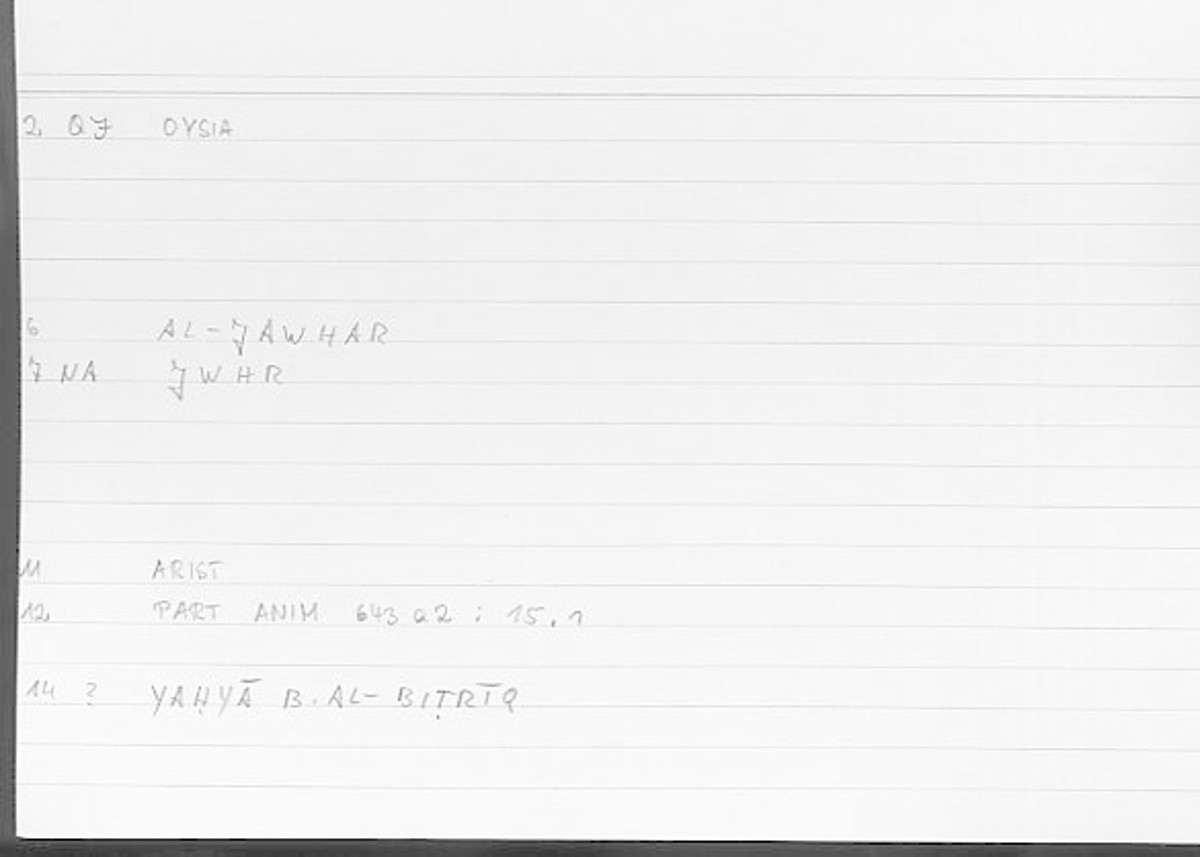 2 QJ OYSIA
6 AL-JAWHAR
7 NA JWHR
11 ARIST
12 PART ANIM 643a2 ; 15,1
14 ? YAḤYĀ B. AL-BIṬRĪQ